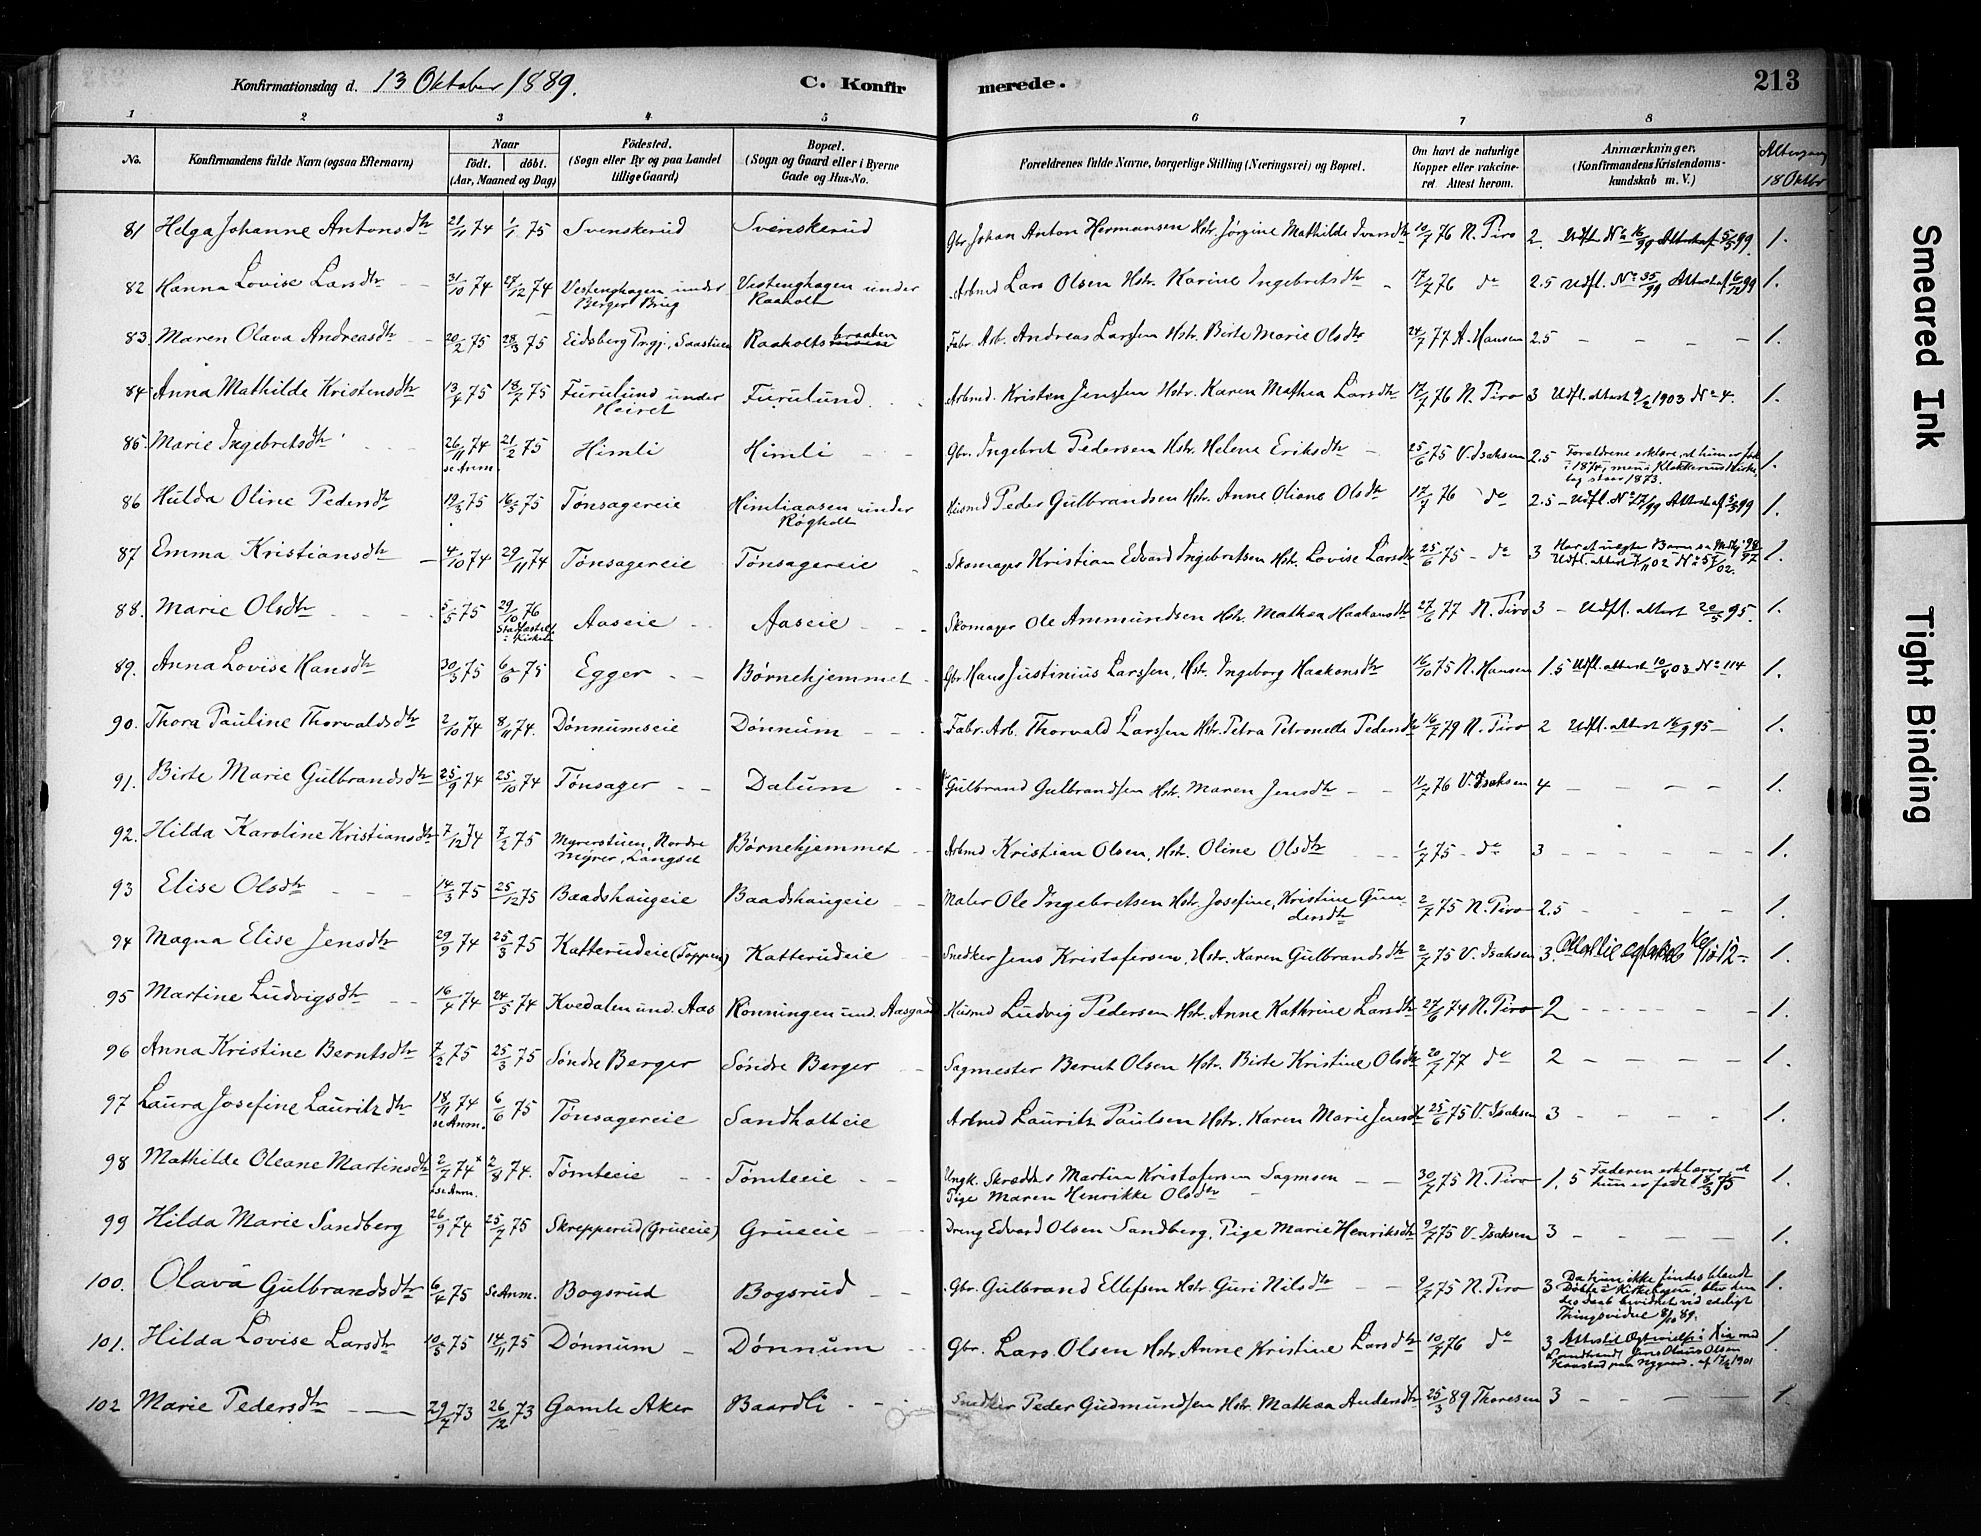 Konfirmationsdag d. 13 Oktober 1889. C. Konfirmerede. 213
1 2 3 4 5 6 7 8
No. Konfirmandens fulde Navn (ogsaa Efternavn) Naar födt. döbt. (Aar, Maaned og Dag) Födested. (Sogn eller By og paa Landet tillige Gaard) Bopæl. (Sogn og Gaard eller i Byerne Gade og Hus-No. Forældrenes fulde Navne, borgerlige Stilling (Næringsvei) og Bopæl. Om havt de naturlige Kopper eller vakcineret Attest herom. Anmærkninger. (Konfirmandens Kristendomskundskab m. V.) Altergang 18 Oktbr
81 Helga Johanne Antonsdtr 21/11 74 1/1 75 Svenskerud Svenskerud Gbr. Johan Anton Hermansen Hstr. Jørgine Mathilde Ivarsdtr 10/7 76 N. Tiro 2. Udfl. No 16/99 Attest af 5/5 99 1.
82 Hanna Lovise Larsdtr 31/10 74 27/12 74 Vestenghagen under Berger Brug Vestenghagen under Raaholt Arbmd Lars Olsen Hstr. Karine Ingebretsdtr 17/7 76 do 2.5 Udfl. No 35/99 Attest af 6/12 99 1.
83. Maren Olava Andreasdtr 20/2 75 28/3 75 Eidsberg Prgj., Saastuen Raaholtsbraaten Fabr. Arb. Andreas Larssen Hstr. Birte Marie Olsdtr 24/7 77 A. Hansen 2.5 1.
84 Anna Mathilde Kristensdtr 13/4 75 18/7 75 Furulund under Heiret Furulund Arbmd. Kristen Jenssen Hstr. Karen Mathea Larsdtr 17/7 76 N. Tiro 3 Udfl. attest 9/2 1903 No 4. 1.
85. Marie Ingebretsdtr 26/11 74 se Anm. 21/2 75 Himli Himli Gbr. Ingebret Pedersen Hstr. Helene Eriksdtr 25/6 75 V. Isaksen 2.5 Forældrene erklære, at hun er født i 1874, men i Klokkerens Kirkebog staar 1873. 1.
86 Hulda Oline Pedersdtr 19/3 75 16/5 75 Tønsagereie Himliaasen under Røgholt Husmd Peder Gulbrandsen Hstr. Anne Oliane Olsdtr 17/7 76 do 2.5 Udfl. No 17/99 Attest af 5/5 99 1.
87 Emma Kristiansdtr 4/10 74 29/11 74 Tønsagereie Tønsagereie Skomager Kristian Edvard Ingebretsen Hstr. Lovise Larsdtr 25/6 75 do 3 Har et uegte Barn Udfl. attest 7/11 02 No 55/02. 1.
88. Marie Olsdtr 5/5 75 29/10 76 Stadfæstet i Kirken Aaseie Aaseie Skomager Ole Ammundsen Hstr. Mathea Haakonsdtr 27/6 77 N. Tiro 3 Udfl. attest 20/5 95. 1.
89. Anna Lovise Hansdtr 30/3 75 6/6 75 Egger Børnehjemmet Gbr. Hans Justinius Larssen, Hstr. Ingeborg Haakonsdtr 16/10 75 N. Hansen 1.5 Udfl. attest 10/8 03 No 114 1.
90. Thora Pauline Thorvaldsdtr 2/10 74 8/11 74. Dønnumseie Dønnum Fabr. Arb. Thorvald Larssen Hstr. Petra Petronelle Pedersdtr 16/7 79 N. Tiro 2 Udfl. attest 16/9 95 1.
91. Birte Marie Gulbrandsdtr 25/9 74 25/10 74 Tønsager Dalum Gulbrand Gulbrandsen Hstr. Maren Jensdtr 11/7 76 V. Isaksen 4 1.
92. Hilda Karoline Kristiansdtr 7/12 74 7/2 75 Myrerstuen, Nordre Myrer, Langset Børnehjemmet Arbmd Kristian Olsen, Hstr. Oline Olsdtr 1/7 75 do 3 1.
93 Elise Olsdtr 14/3 75 25/12 75 Baadshaugeie Baadshaugeie Maler Ole Ingebretsen Hstr. Josefine Kristine Gundersdtr 2/7 75 N. Tiro 2.5 1.
94 Magna Elise Jensdtr 29/9 74 25/3 75 Katterudeie (Toppen) Katterudeie Snedker Jens Kristofersen, Hstr. Karen Gulbrandsdtr 2/7 75 V. Isaksen 3. 1.
95 Martine Ludvigsdtr 16/4 74 24/5 74 Kvedalen und. Aas Ronningen und. Aasgaard Husmd Ludvig Pedersen Hstr. Anne Kathrine Larsdtr 27/6 74 N. Tiro 2 1.
96 Anna Kristine Berntsdtr 7/2 75 25/3 75 Søndre Berger Søndre Berger Sagmester Bernt Olsen Hstr. Birte Kristine Olsdtr 20/7 77 do 2 1.
97 Laura Josefine Lauritzdtr 18/11 74 se Anm. 6/6 75 Tønsagereie Sandholteie Arbmd Lauritz Paulsen Hstr. Karen Marie Jensdtr 25/6 75 V. Isaksen 3 1.
98 Mathilde Oleane Martinsdtr 2/7 74 x se Anm. 2/8 74. Tømteeie Tømteeie Ungk. Skrædder Martin Kristofersen Sagmoen Pige Maren Henrikke Olsdtr 30/7 75 N. Tiro 1.5 Faderen erklærer, at hun er født 18/3 75 1.
99 Hilda Marie Sandberg 26/9 74 25/7 75 Skrepperud (Grueeie) Grueeie Dreng Edvard Olsen Sandberg, Pige Marie Henriksdtr 9/7 75 V. Isaksen 3 1.
100. Olava Gulbrandsdtr 6/4 75 se Anm. Bogsrud Bogsrud Gbr. Gulbrand Ellefsen Hstr. Guri Nilsdtr 9/7 75 N. Tiro 3 Da hun ikke findes blandt Døbte i Kirkebogen, blev dennes Daab bevidnet ved edeligt Thingsvidne 8/10 89. 1.
101. Hilda Lovise Larsdtr 10/5 75 14/11 75 Dønnum Dønnum Gbr. Lars Olsen Hstr. Anne Kristine Larsdtr 10/7 76 do 3 1.
102 Marie Pedersdtr 29/7 73 26/12 73 Gamle Aker Baardli Snedker Peder Gudmundsen Hstr. Mathea Andersdtr 25/3 89 Thoresen 3 1.
Smeared Ink
Tight Binding